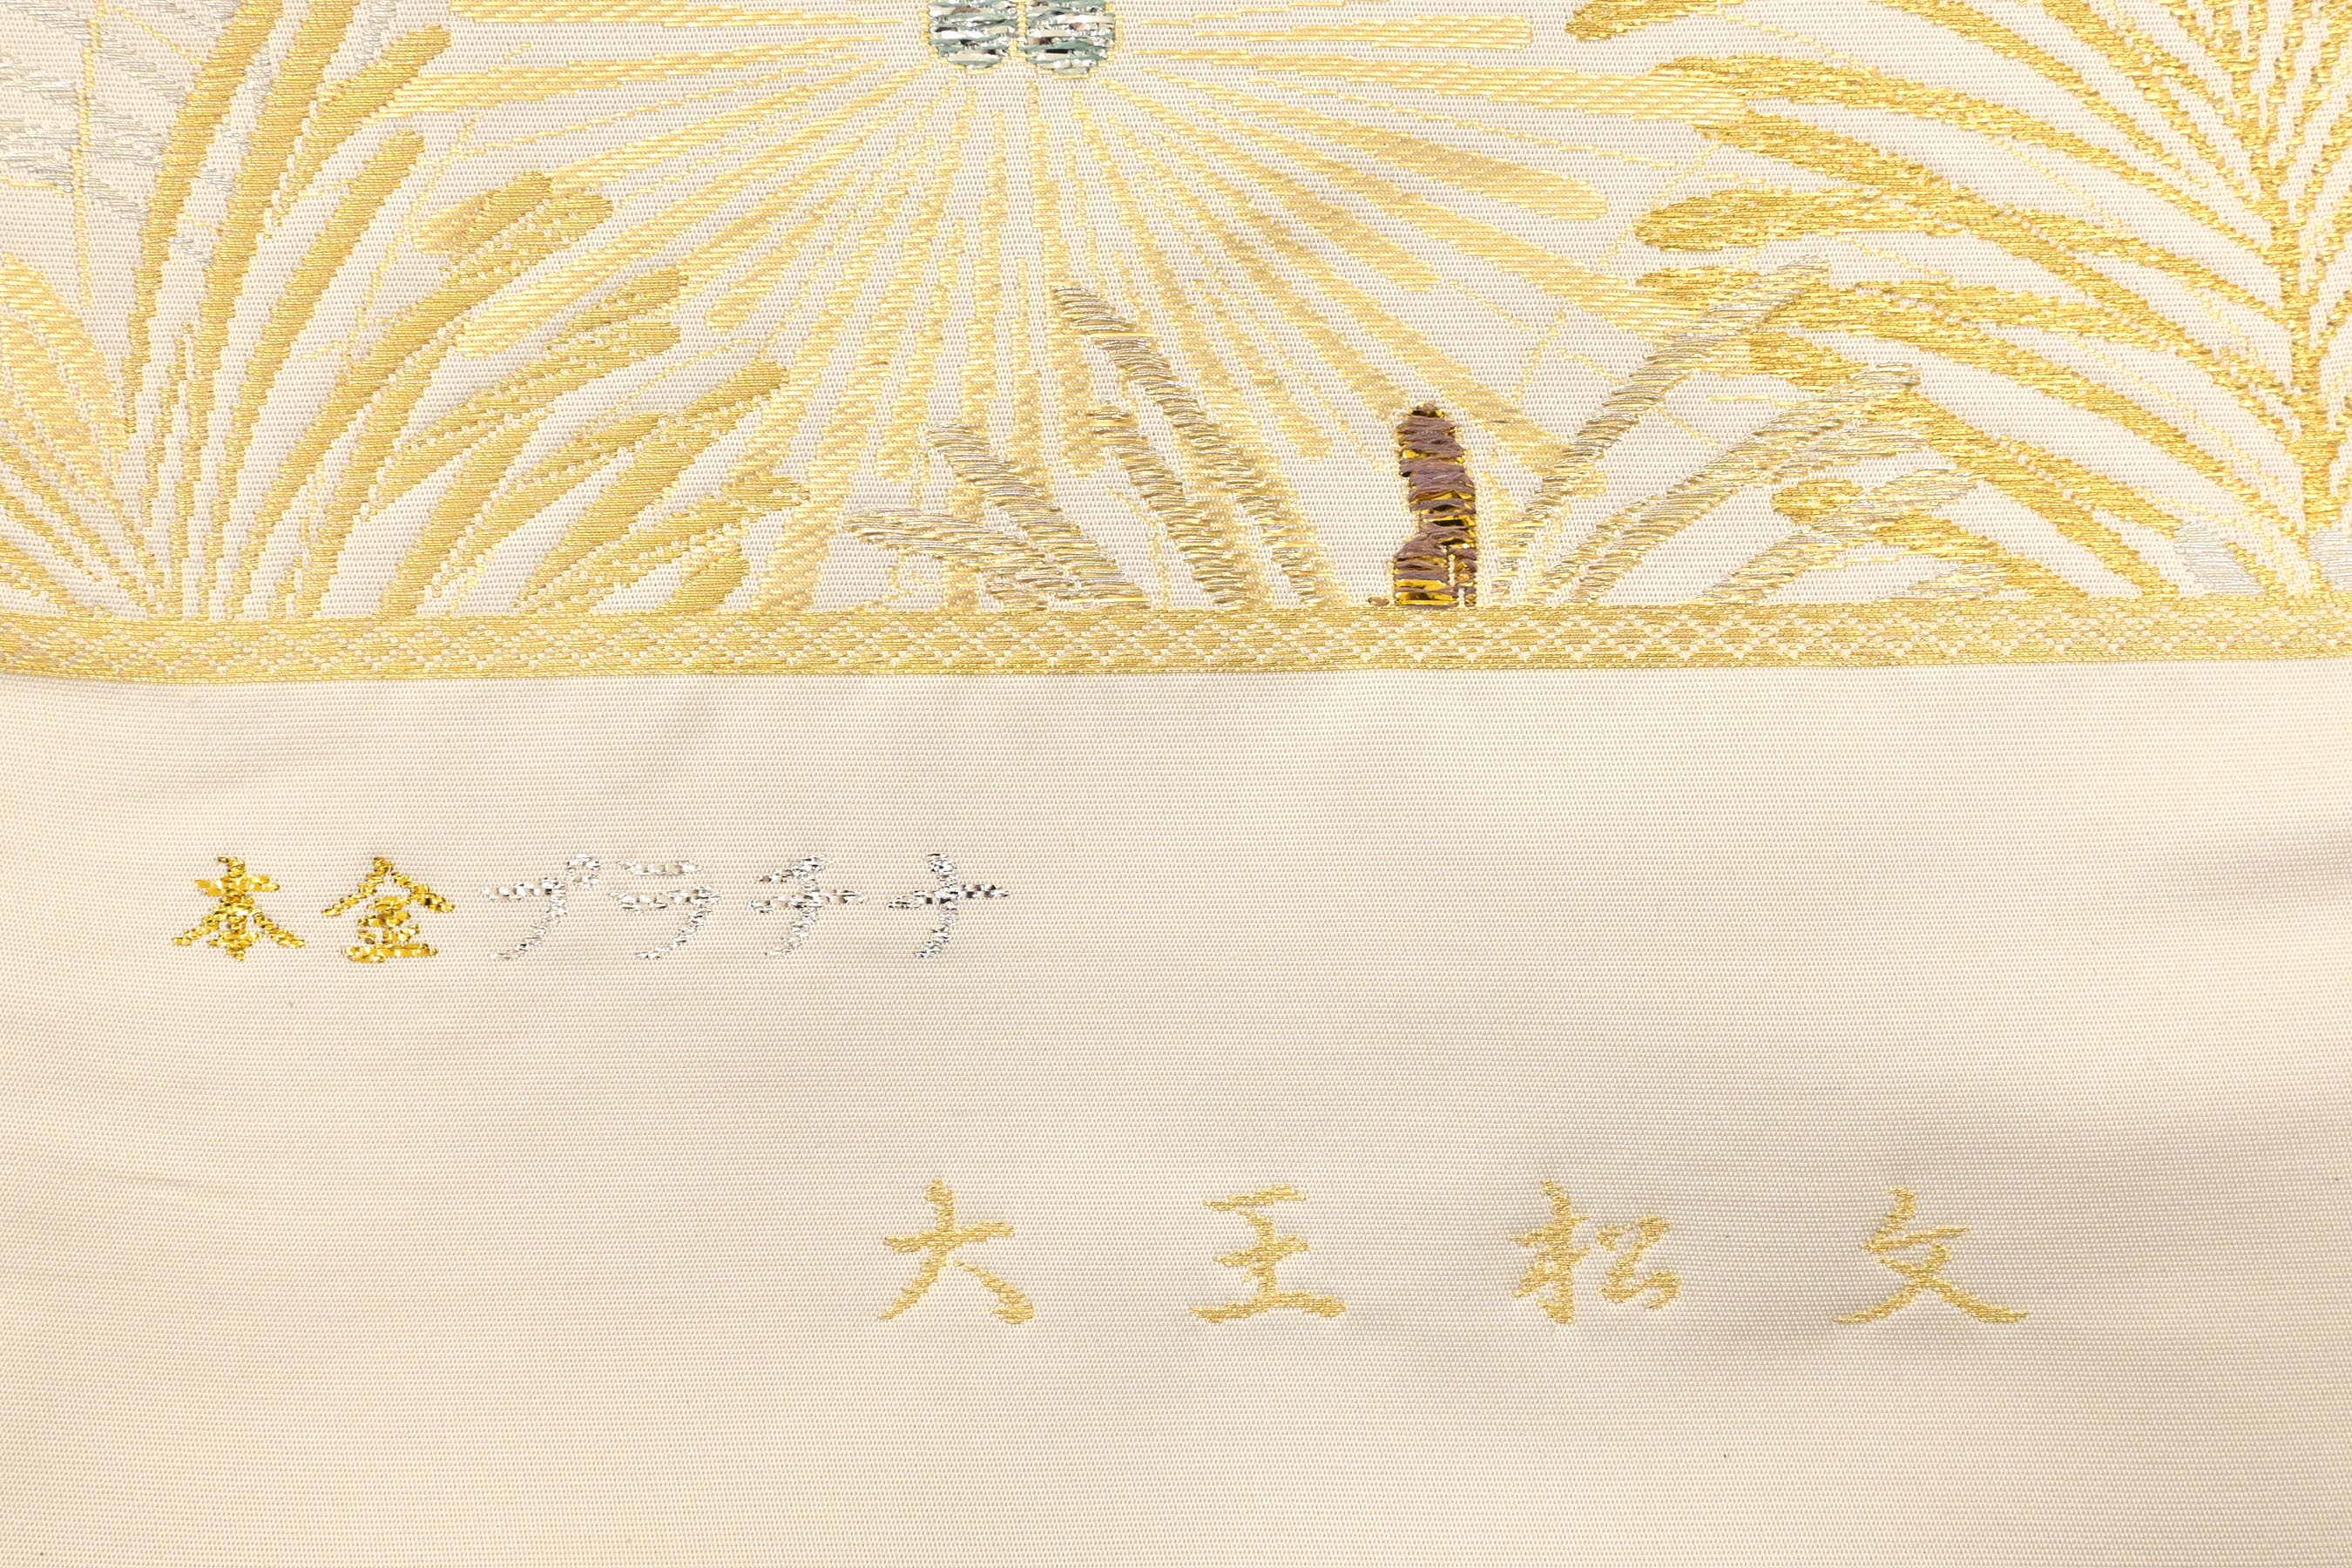 本金プラチナ
大王松文